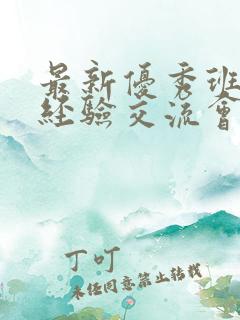 最新優秀班
經驗交流會
丁叮
未经同意禁止转载